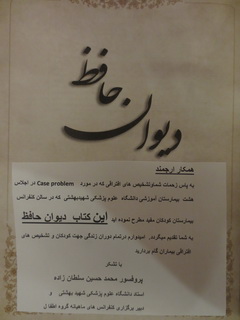 دیوان حافظ
همکار ارجمند
به پاس زحمات شما وتشخیص های افتراقی که در مورد Case problem در اجلاس
هشت بیمارستان آموزشی دانشگاه علوم پزشکی شهیدبهشتی که در سالن کنفرانس
بیمارستان کودکان مفید مطرح نموده اید این کتاب دیوان حافظ
به شما تقدیم میگردد. امیدوارم درتمام دوران زندگی جهت کودکان و تشخیص های
افتراقی بیماران گام بردارید
با تشکر
پروفسور محمد حسین سلطان زاده
استاد دانشگاه علوم پزشکی شهید بهشتی و
دبیر برگزاری کنفرانس های ماهیانه گروه اطفال